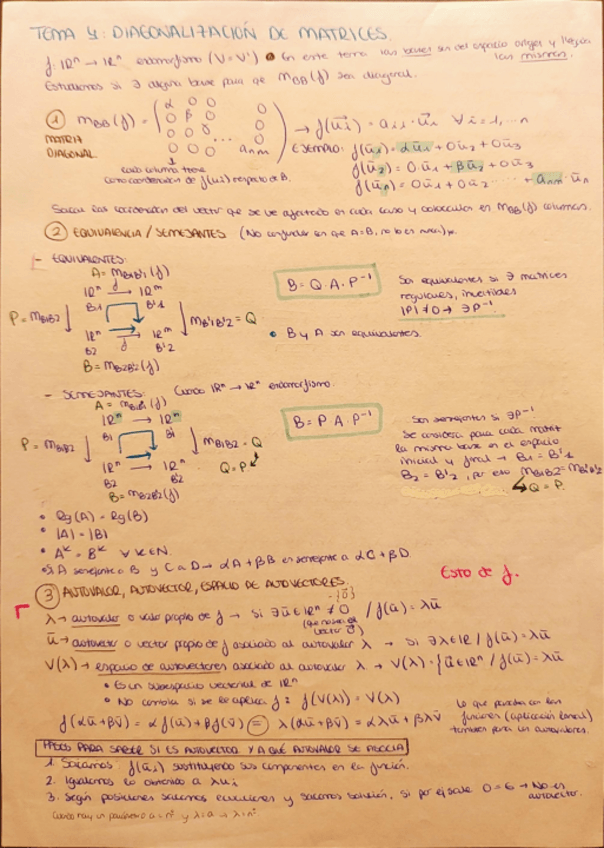 TEMA 4: DIAGONALIZACIÓN DE MATRICES.
f: ℝⁿ → ℝⁿ endomorfismo (V=V') • En este tema las bases son del espacio origen y llegada son las mismas.
Estudiamos si ∃ alguna base para que M_BB(f) sea diagonal.
① M_BB(f) = (α 0 0 0
0 β 0 0
0 0 0
0 0 0 ... a_nn) → f(u⃗i) = a_ii · u⃗i ∀ i = 1, ... n
MATRIZ DIAGONAL
cada columna tiene como coordenadas de f(ui) respecto de B.
EJEMPLO: f(u⃗1) = αu⃗1 + 0u⃗2 + 0u⃗3
f(u⃗2) = 0·u⃗1 + βu⃗2 + 0u⃗3
f(u⃗n) = 0u⃗1 + 0u⃗2 ...... + a_nn · u⃗n
Sacar las coordenadas del vector que se ve afectado en cada caso y colocarlas en M_BB(f) columnas.
② EQUIVALENCIA / SEMEJANTES (No confundir en que A=B, no lo es nunca)*.
- EQUIVALENTES:
A = M_B1B'1(f)
ℝⁿ f→ ℝᵐ
B1 B'1
P = M_B1B2 ↓ ↓ M_B'1B'2 = Q
ℝⁿ f→ ℝᵐ
B2 B'2
B = M_B2B'2(f)
B = Q · A · P⁻¹
Son equivalentes si ∃ matrices
regulares, invertibles
|P| ≠ 0 → ∃ P⁻¹.
• B y A son equivalentes.
- SEMEJANTES: Cuando ℝⁿ → ℝⁿ endomorfismo.
A = M_B1B1(f)
ℝⁿ → ℝⁿ
B1 B1
P = M_B1B2 ↓ ↓ M_B1B2 = Q
Q = P
ℝⁿ → ℝⁿ
B2 B2
B = M_B2B'2(f)
B = P A · P⁻¹
Son semejantes si ∃ P⁻¹
Se considera para cada matriz
la misma base en el espacio
inicial y final → B1 = B'1
B2 = B'2, por eso M_B1B2 = M_B'1B'2
→ Q = P.
• Rg(A) = Rg(B)
• |A| = |B|
• Aᴷ = Bᴷ ∀ K∈ℕ.
• Si A semejante a B y C a D → αA + βB es semejante a αC + βD.
③ AUTOVALOR, AUTOVECTOR, ESPACIO DE AUTOVECTORES.
Esto de f.
λ → autovalor o valor propio de f → si ∃ u⃗ ∈ ℝⁿ - {0⃗} ≠ 0 / f(u⃗) = λu⃗
(que no sea el vector 0⃗)
u⃗ → autovector o vector propio de f asociado al autovalor λ → si ∃ λ∈ℝ / f(u⃗) = λu⃗
V(λ) → espacio de autovectores asociado al autovalor λ → V(λ) = {u⃗∈ℝⁿ / f(u⃗) = λu⃗
• Es un subespacio vectorial de ℝⁿ
• No cambia si se le aplica f: f(V(λ)) = V(λ)
f(αu⃗ + βv⃗) = αf(u⃗) + βf(v⃗) = λ(αu⃗ + βv⃗) = αλu⃗ + βλv⃗
Lo que pasaba con las
funciones (aplicación lineal)
también para los autovalores.
PASOS PARA SABER SI ES AUTOVECTOR Y A QUÉ AUTOVALOR SE ASOCIA
1. Sacamos f(u⃗i) sustituyendo sus componentes en la función.
2. Igualamos lo obtenido a λui
3. Según posiciones sacamos ecuaciones y sacamos solución, si por ej sale 0=6 → No es autovector.
Cuando hay un parámetro